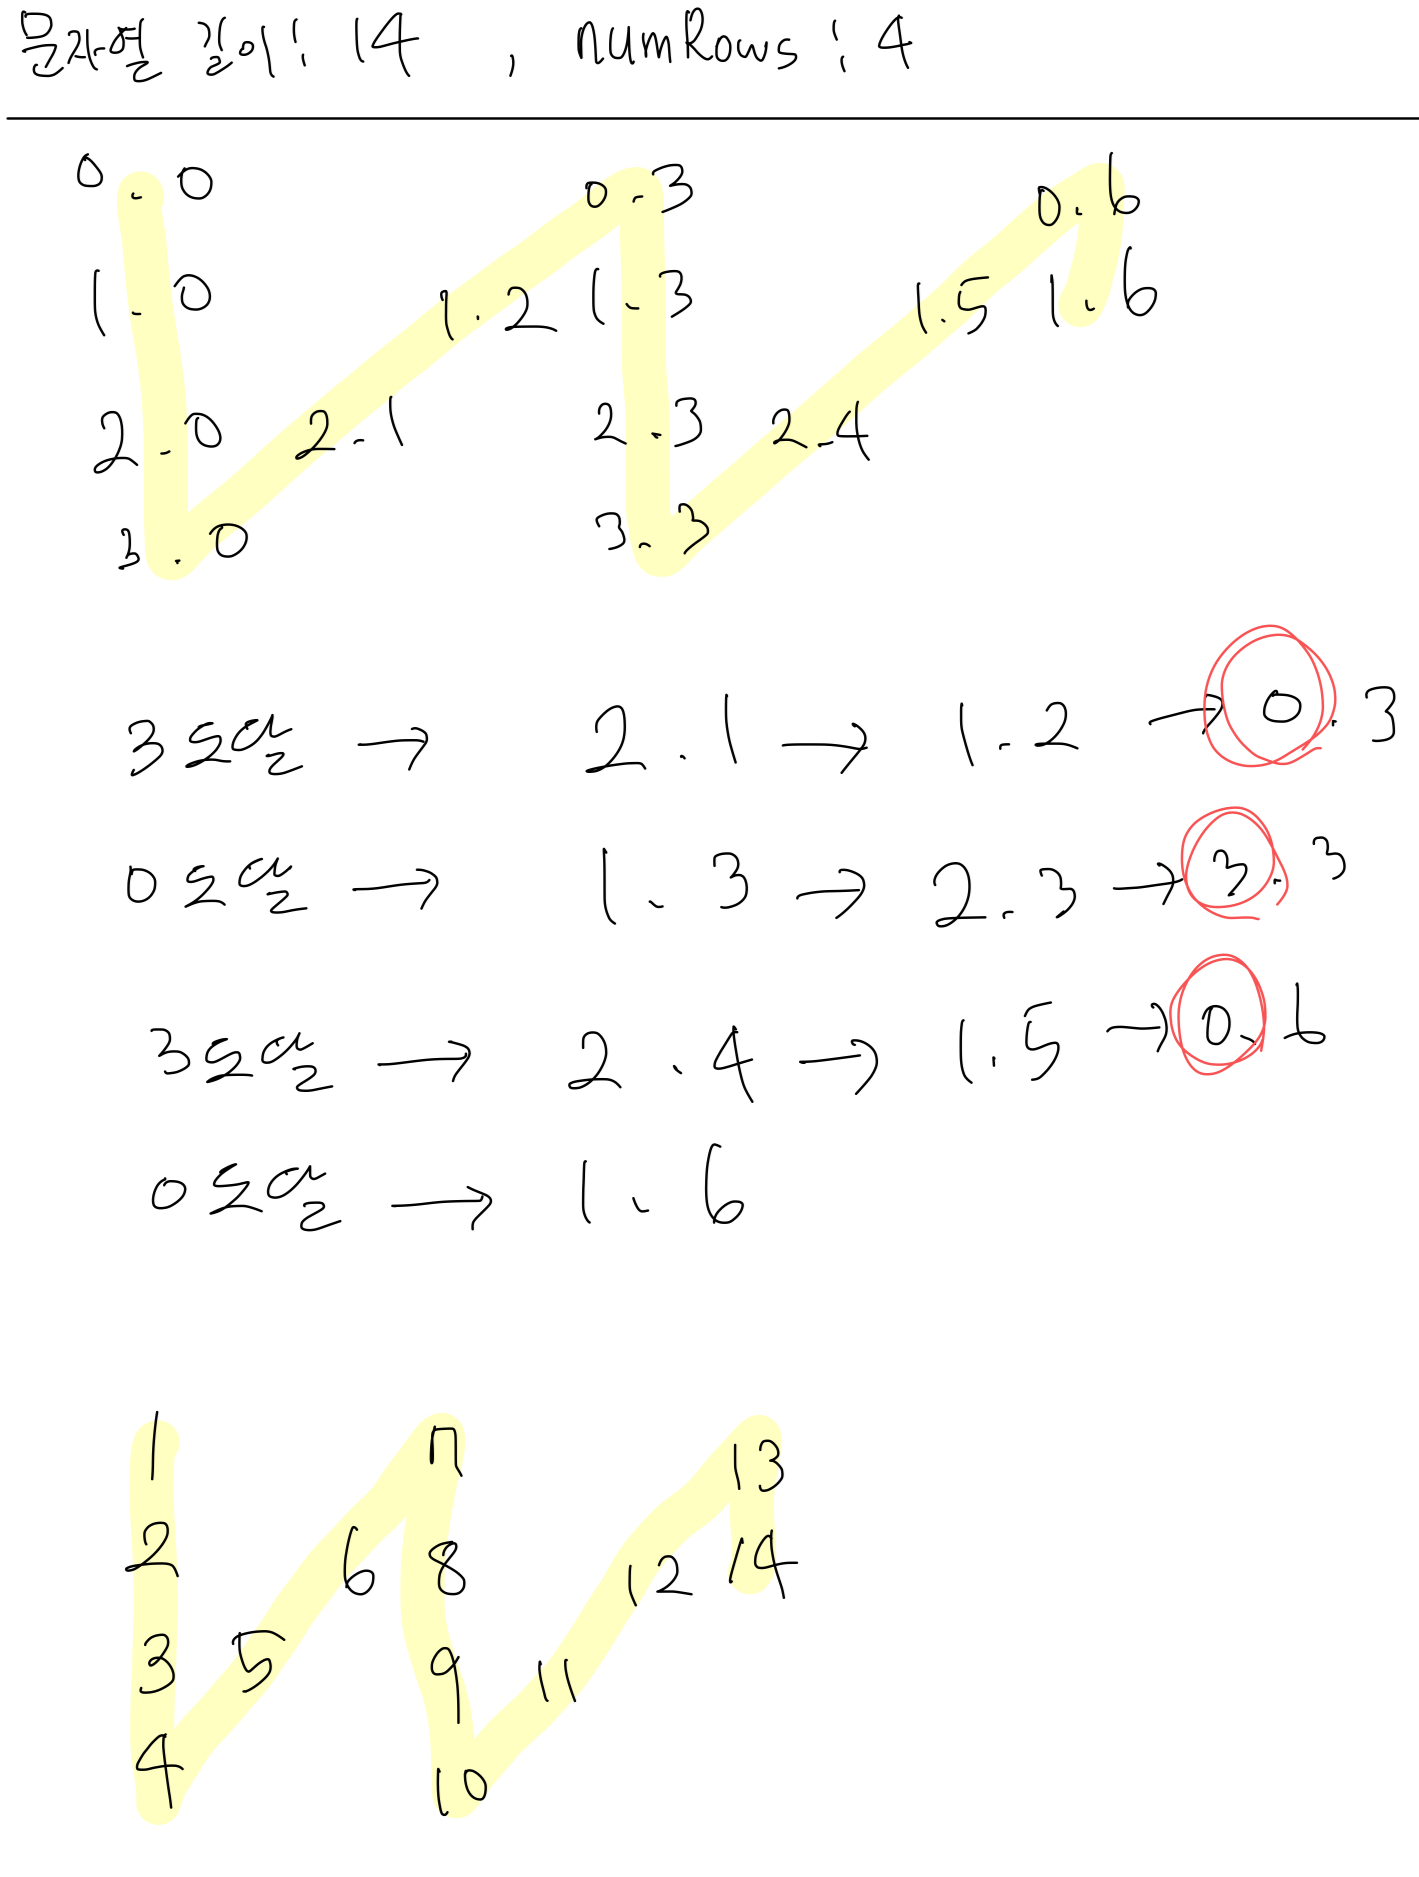 문자열 길이: 14 , numRows : 4
0.0 0.3 0.6
1.0 1.2 1.3 1.5 1.6
2.0 2.1 2.3 2.4
3.0 3.3
3도달 → 2.1 → 1.2 → 0.3
0도달 → 1.3 → 2.3 → 3.3
3도달 → 2.4 → 1.5 → 0.6
0도달 → 1.6
1 7 13
2 6 8 12 14
3 5 9 11
4 10